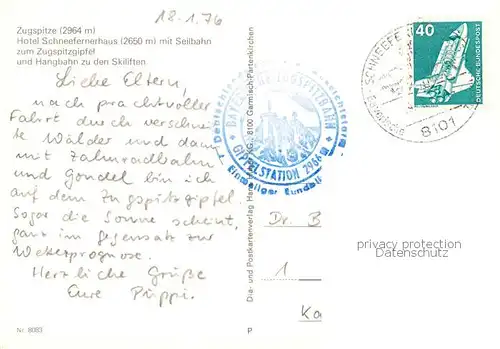 18.1.76
Zugspitze (2964 m)
Hotel Schneefernerhaus (2650 m) mit Seilbahn
zum Zugspitzgipfel
und Hangbahn zu den Skiliften
Liebe Eltern,
nach prachtvoller
Fahrt durch verschnei-
te Wälder und dann
mit Zahnradbahn
und Gondel bin ich
auf dem Zugspitzgipfel.
Sogar die Sonne scheint,
ganz im Gegensatz zur
Wetterprognose.
Herzliche Grüße
Eure Püppi.
Nr. 8083
P
Dia- und Postkartenverlag
8100 Garmisch-Partenkirchen
BAYER. ZUGSPITZBAHN
GIPFELSTATION 2966 m
Einmaliger Rundblick
40
DEUTSCHE BUNDESPOST
SCHNEEFE
8101
Dr. B
1
Ka
privacy protection
Datenschutz